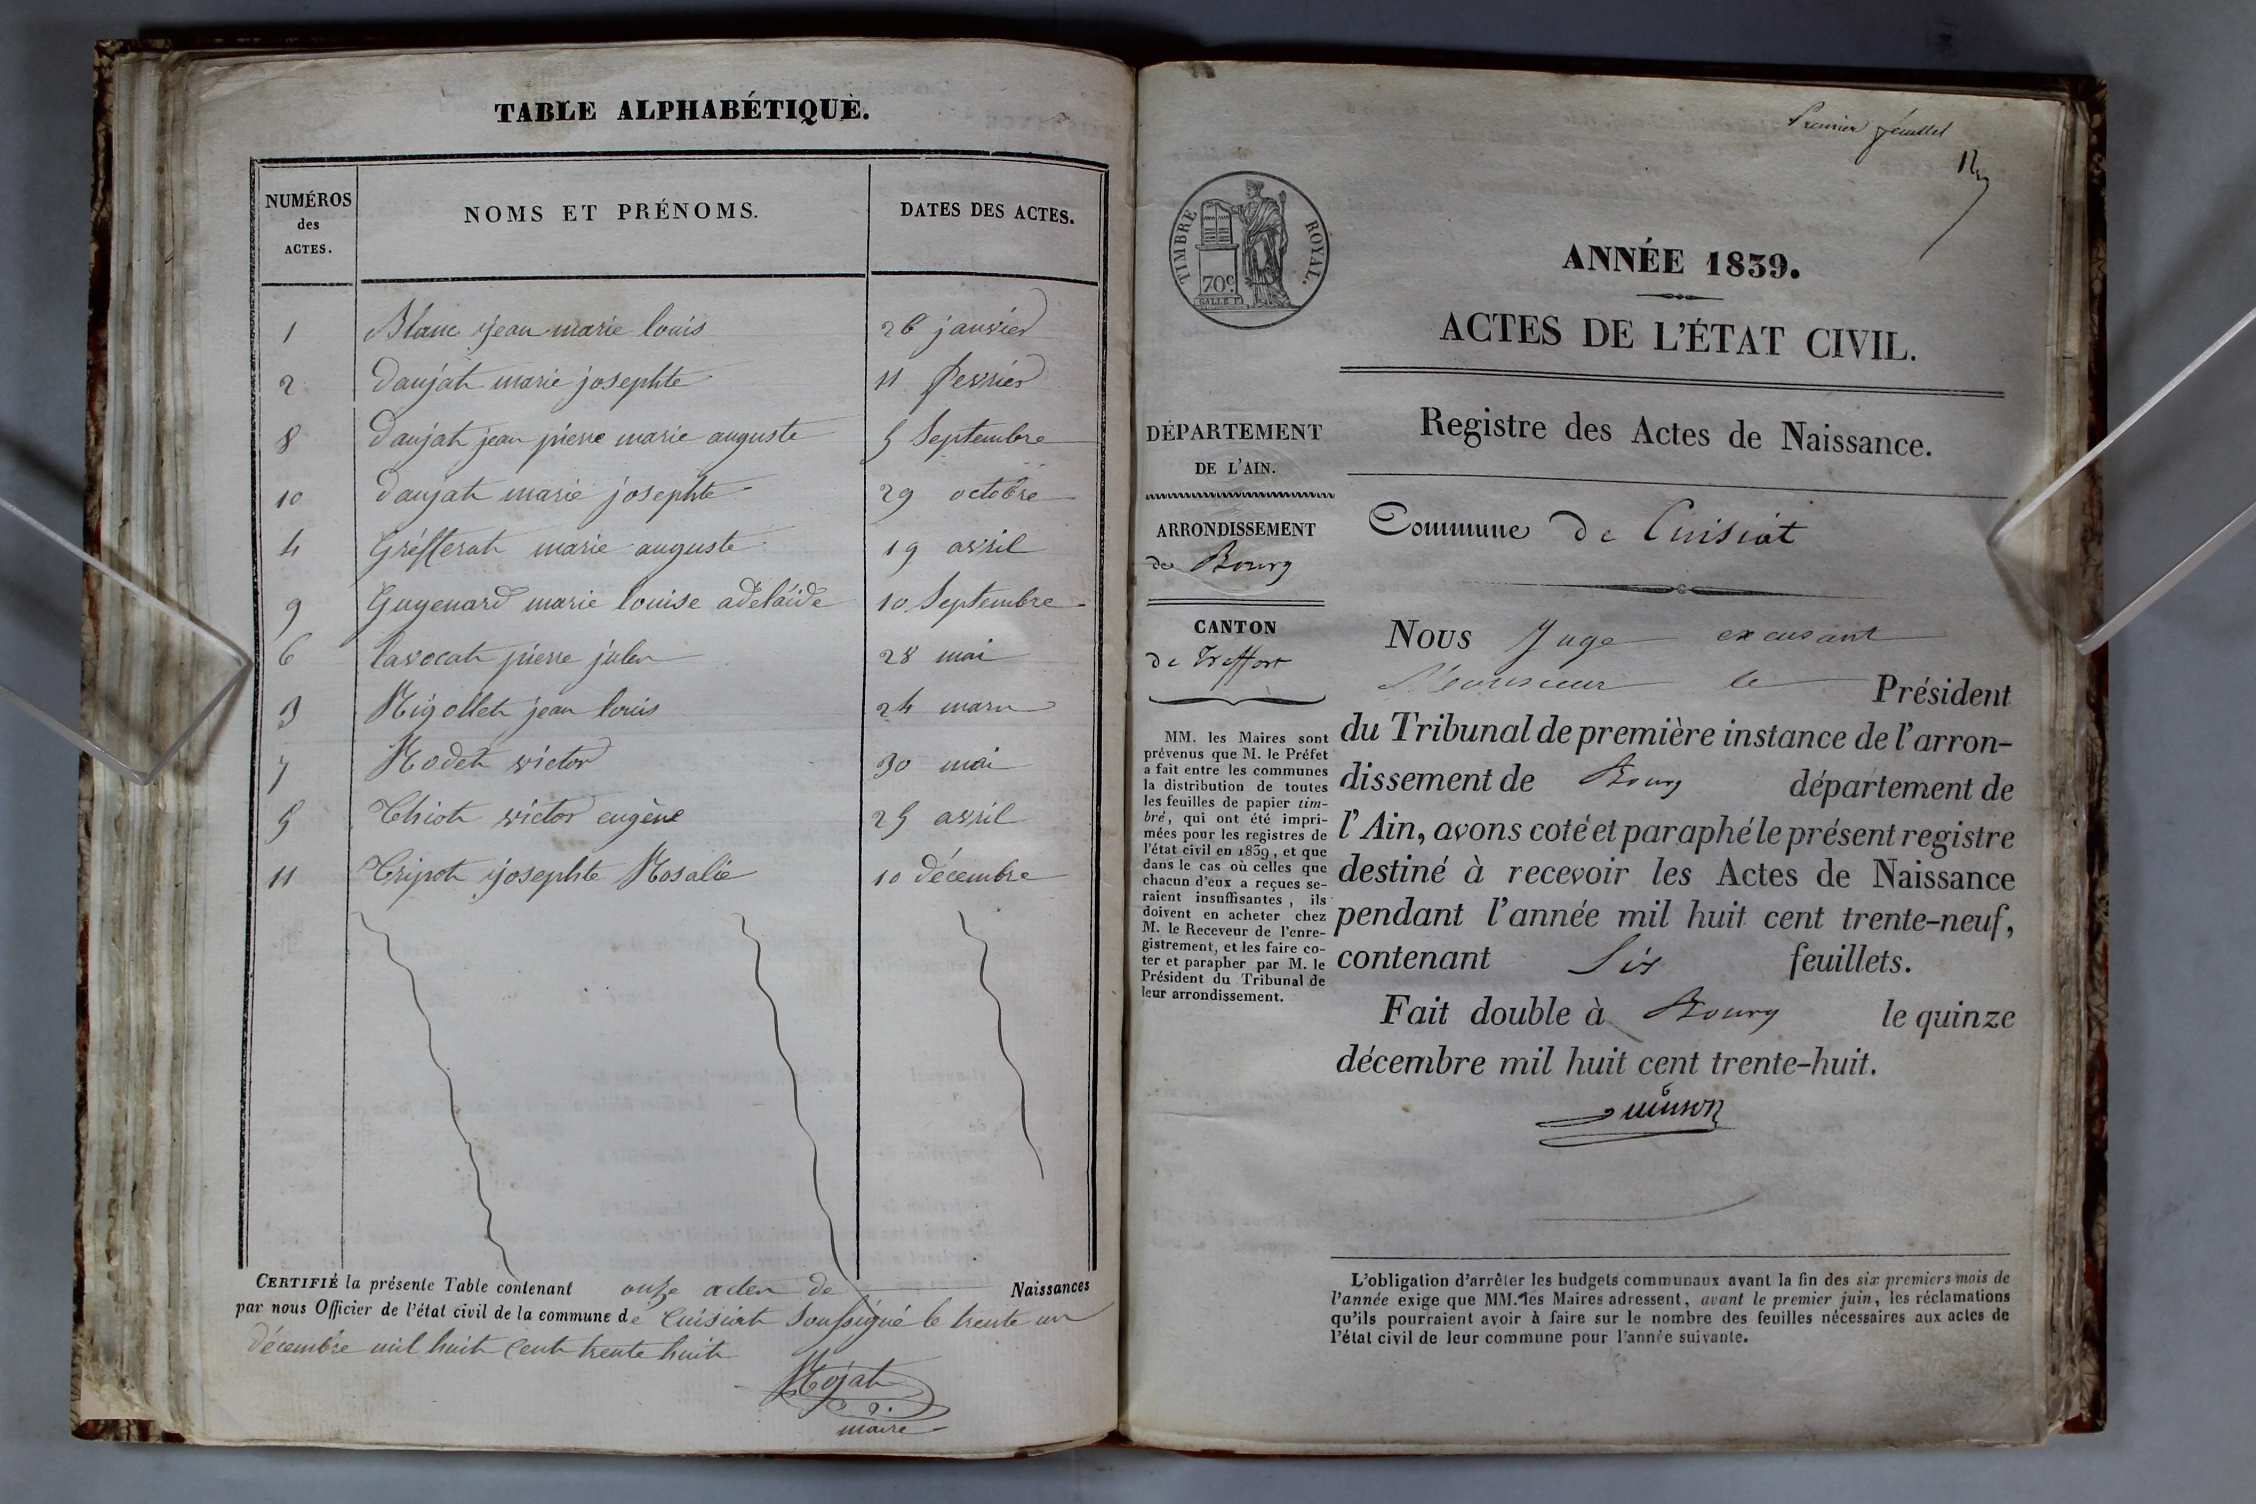 TABLE ALPHABÉTIQUE.
NUMÉROS des ACTES. NOMS ET PRÉNOMS. DATES DES ACTES.
1 Blanc jean marie louis 26 janvier
2 daujat marie josephte 11 fevrier
8 daujat jean pierre marie auguste 5 Septembre
10 daujat marie josephte 29 octobre
4 Gréffterat marie auguste 19 avril
9 Guyenard marie louise adelaïde 10 Septembre
6 lavocat pierre jules 28 mai
3 Rigollet jean louis 24 mars
7 Rodet victor 30 mai
5 Thiot victor eugène 25 avril
11 Tripot josephte Rosalie 10 décembre
CERTIFIÉ la présente Table contenant onze actes de Naissances
par nous Officier de l'état civil de la commune de Cuisiat Soussigné le trente un
décembre mil huit cent trente huit
Rojat
maire
Premier feuillet
TIMBRE ROYAL.
70c
ANNÉE 1839.
ACTES DE L'ÉTAT CIVIL.
Registre des Actes de Naissance.
DÉPARTEMENT
DE L'AIN.
ARRONDISSEMENT
de Bourg
CANTON
de Treffort
MM. les Maires sont
prévenus que M. le Préfet
a fait entre les communes
la distribution de toutes
les feuilles de papier tim-
bré, qui ont été impri-
mées pour les registres de
l'état civil en 1839, et que
dans le cas où celles que
chacun d'eux a reçues se-
raient insuffisantes, ils
doivent en acheter chez
M. le Receveur de l'enre-
gistrement, et les faire co-
ter et parapher par M. le
Président du Tribunal de
leur arrondissement.
Commune de Cuisiat
Nous Juge excusant
Monsieur le Président
du Tribunal de première instance de l'arron-
dissement de Bourg département de
l'Ain, avons coté et paraphé le présent registre
destiné à recevoir les Actes de Naissance
pendant l'année mil huit cent trente-neuf,
contenant Six feuillets.
Fait double à Bourg le quinze
décembre mil huit cent trente-huit.
L'obligation d'arrêter les budgets communaux avant la fin des six premiers mois de
l'année exige que MM. les Maires adressent, avant le premier juin, les réclamations
qu'ils pourraient avoir à faire sur le nombre des feuilles nécessaires aux actes de
l'état civil de leur commune pour l'année suivante.